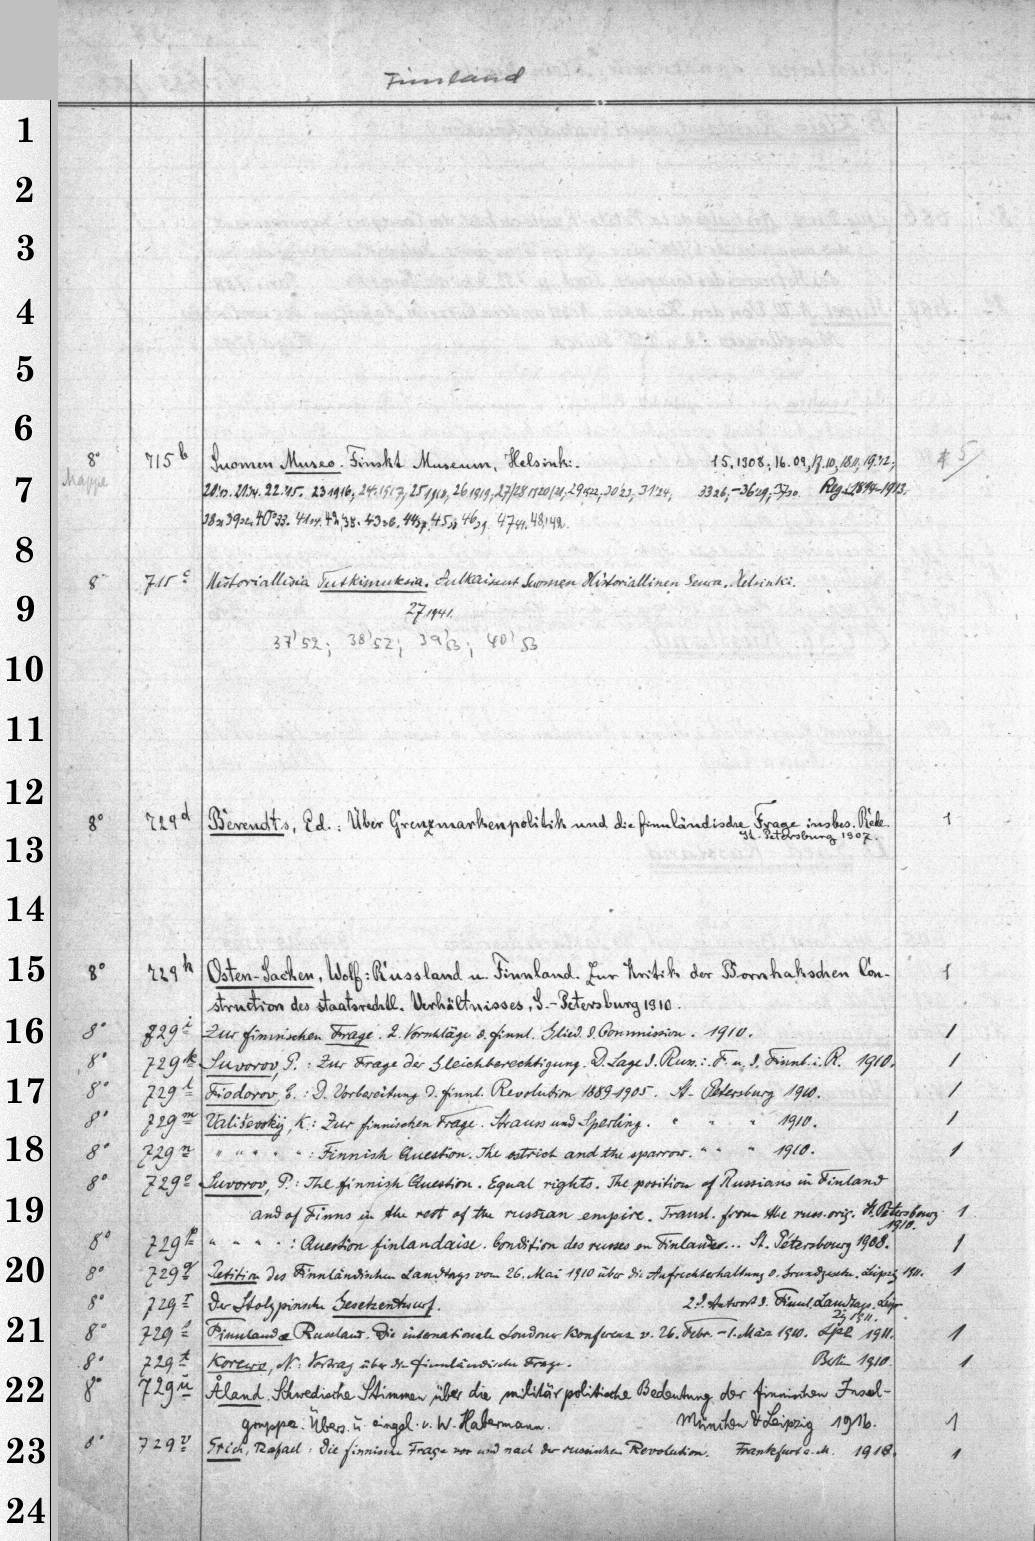 Finnland
1
2
3
4
5
6
8° 715b Suomen Museo. Finskt Museum, Helsinki. 15, 1908; 16. 09, 17.10, 18.11, 19.12; 5
Mappe
7
20.13. 21.14. 22.15. 23 1916; 24.1917; 25 1918, 26 1919, 27/28 1920/21, 29 1922, 30'23, 31'24, 33 26, -36 29, 37 30. Reg. 1894-1913.
39 32. 40 33. 41 34. 43 36. 44 37. 45 38. 46 39. 47 41. 48, 1942.
8
8° 715c Historiallisia Tutkimuksia. Julkaissut Suomen Historiallinen Seura. Helsinki.
9
27 1941.
37'52; 38'52; 39'53; 40'53
10
11
12
8° 729d Berendts, Ed.: Über Grenzmarkenpolitik und die finnländische Frage insbes. Rede. 1
St. Petersburg 1907.
13
14
15
8° 729h Osten-Sacken, Wolf: Russland u. Finnland. Zur Kritik der Bornhakschen Con- 1
struction des staatsrechtl. Verhältnisses, S.-Petersburg 1910.
16
8° 729i Zur finnischen Frage. 2. Vorschläge d. finnl. Glied. d. Commission. 1910. 1
8° 729k Suvorov, P.: Zur Frage der Gleichberechtigung. D. Lage d. Russ. i. F. u. d. Finnl. i. R. 1910. 1
17
8° 729l Fiodorov, E.: D. Vorbereitung d. finnl. Revolution 1889-1905. St. Petersburg 1910. 1
8° 729m Vališevskij, K.: Zur finnischen Frage. Strauss und Sperling. " " " 1910. 1
18
8° 729n " " " " " : Finnish Question. The ostrich and the sparrow. " " " 1910. 1
8° 729o Suvorov, P.: The finnish Question. Equal rights. The position of Russians in Finland
19
and of Finns in the rest of the russian empire. Transl. from the russ. orig. St. Petersbourg 1
1910.
8° 729p " " " " : Question finlandaise. Condition des russes en Finlande... St. Pétersbourg 1908. 1
20
8° 729q Petition des Finnländischen Landtags vom 26. Mai 1910 über die Aufrechterhaltung d. Grundgesetze. Leipzig 1910. 1
8° 729r Der Stolypinsche Gesetzentwurf. 2. d. Antwort d. Finnl. Landtags. Leip-
zig 1911.
21
8° 729s Finnland & Russland. Die internationale Londoner Konferenz v. 26. Febr. - 1. März 1910. Lpz 1911. 1
8° 729t Korevo, N: Vortrag über die finnländische Frage. Berlin 1910. 1
22
8° 729u Åland. Schwedische Stimmen über die militärpolitische Bedeutung der finnischen Insel-
gruppe. Übers. u. eingel. v. W. Habermann. München & Leipzig 1916. 1
23
8° 729v Erich, Rafael: Die finnische Frage vor und nach der russischen Revolution. Frankfurt a. M. 1918. 1
24